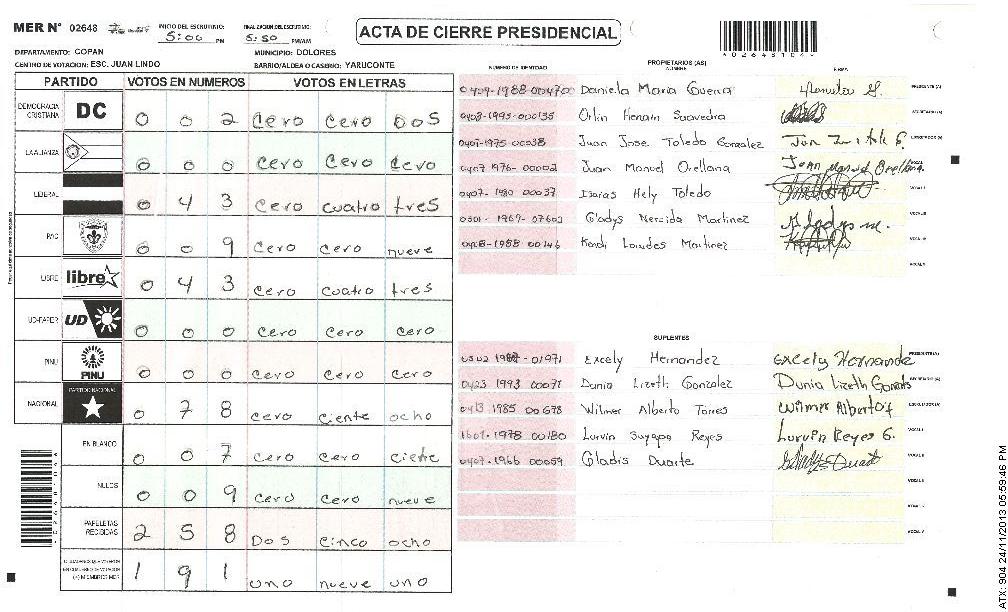 MER N° 02648 INICIO DEL ESCRUTINIO: 5:00 PM FINALIZACION DEL ESCRUTINIO: 5:50 PM/AM
ACTA DE CIERRE PRESIDENCIAL
DEPARTAMENTO: COPAN MUNICIPIO: DOLORES
CENTRO DE VOTACION: ESC. JUAN LINDO BARRIO/ALDEA O CASERIO: YARUCONTE
PARTIDO VOTOS EN NUMEROS VOTOS EN LETRAS
DEMOCRACIA CRISTIANA DC 0 0 2 cero cero Dos
LA ALIANZA 0 0 0 cero cero cero
LIBERAL 0 4 3 cero cuatro tres
PAC 0 0 9 cero cero nueve
LIBRE libre 0 4 3 cero cuatro tres
UD-FAPER UD 0 0 0 cero cero cero
PINU PINU 0 0 0 cero cero cero
NACIONAL PARTIDO NACIONAL 0 7 8 cero ciente ocho
EN BLANCO 0 0 7 cero cero ciente
NULOS 0 0 9 cero cero nueve
PAPELETAS RECIBIDAS 2 5 8 Dos cinco ocho
CIUDADANOS QUE VOTARON EN CUADERNO DE VOTACION (+) MIEMBROS MER 1 9 1 uno nueve uno
NUMERO DE IDENTIDAD PROPIETARIOS (AS) NOMBRE FIRMA
Daniela Maria Guerra PRESIDENTE (A)
0408-1993-000135 Orlin Hernain Saavedra SECRETARIO (A)
0407-1975-00038 Juan Jose Toledo Gonzalez ESCRUTADOR (A)
0407 1976-00002 Juan Manuel Orellana Juan Manuel Orellana VOCAL I
0407-1980 00037 Isaias Hely Toledo VOCAL II
0501-1967-07603 Gladys Nereida Martinez Gladys m. VOCAL III
0408-1988 00146 Kendi Lourdes Martinez VOCAL IV
VOCAL V
SUPLENTES
Excely Hernandez Excely Hernande PRESIDENTE (A)
0423 1993 00071 Dunia Lizeth Gonzalez Dunia Lizeth Gonzales SECRETARIO (A)
0413 1985 00678 Wilmer Alberto Torres Wilmer Alberto T ESCRUTADOR (A)
1601-1978 00180 Lurvin Suyapa Reyes Lurvin Reyes G. VOCAL I
0407-1966 00059 Gladis Duarte VOCAL II
VOCAL III
VOCAL IV
VOCAL V
ATX: 904 24/11/2013 05:59:46 PM